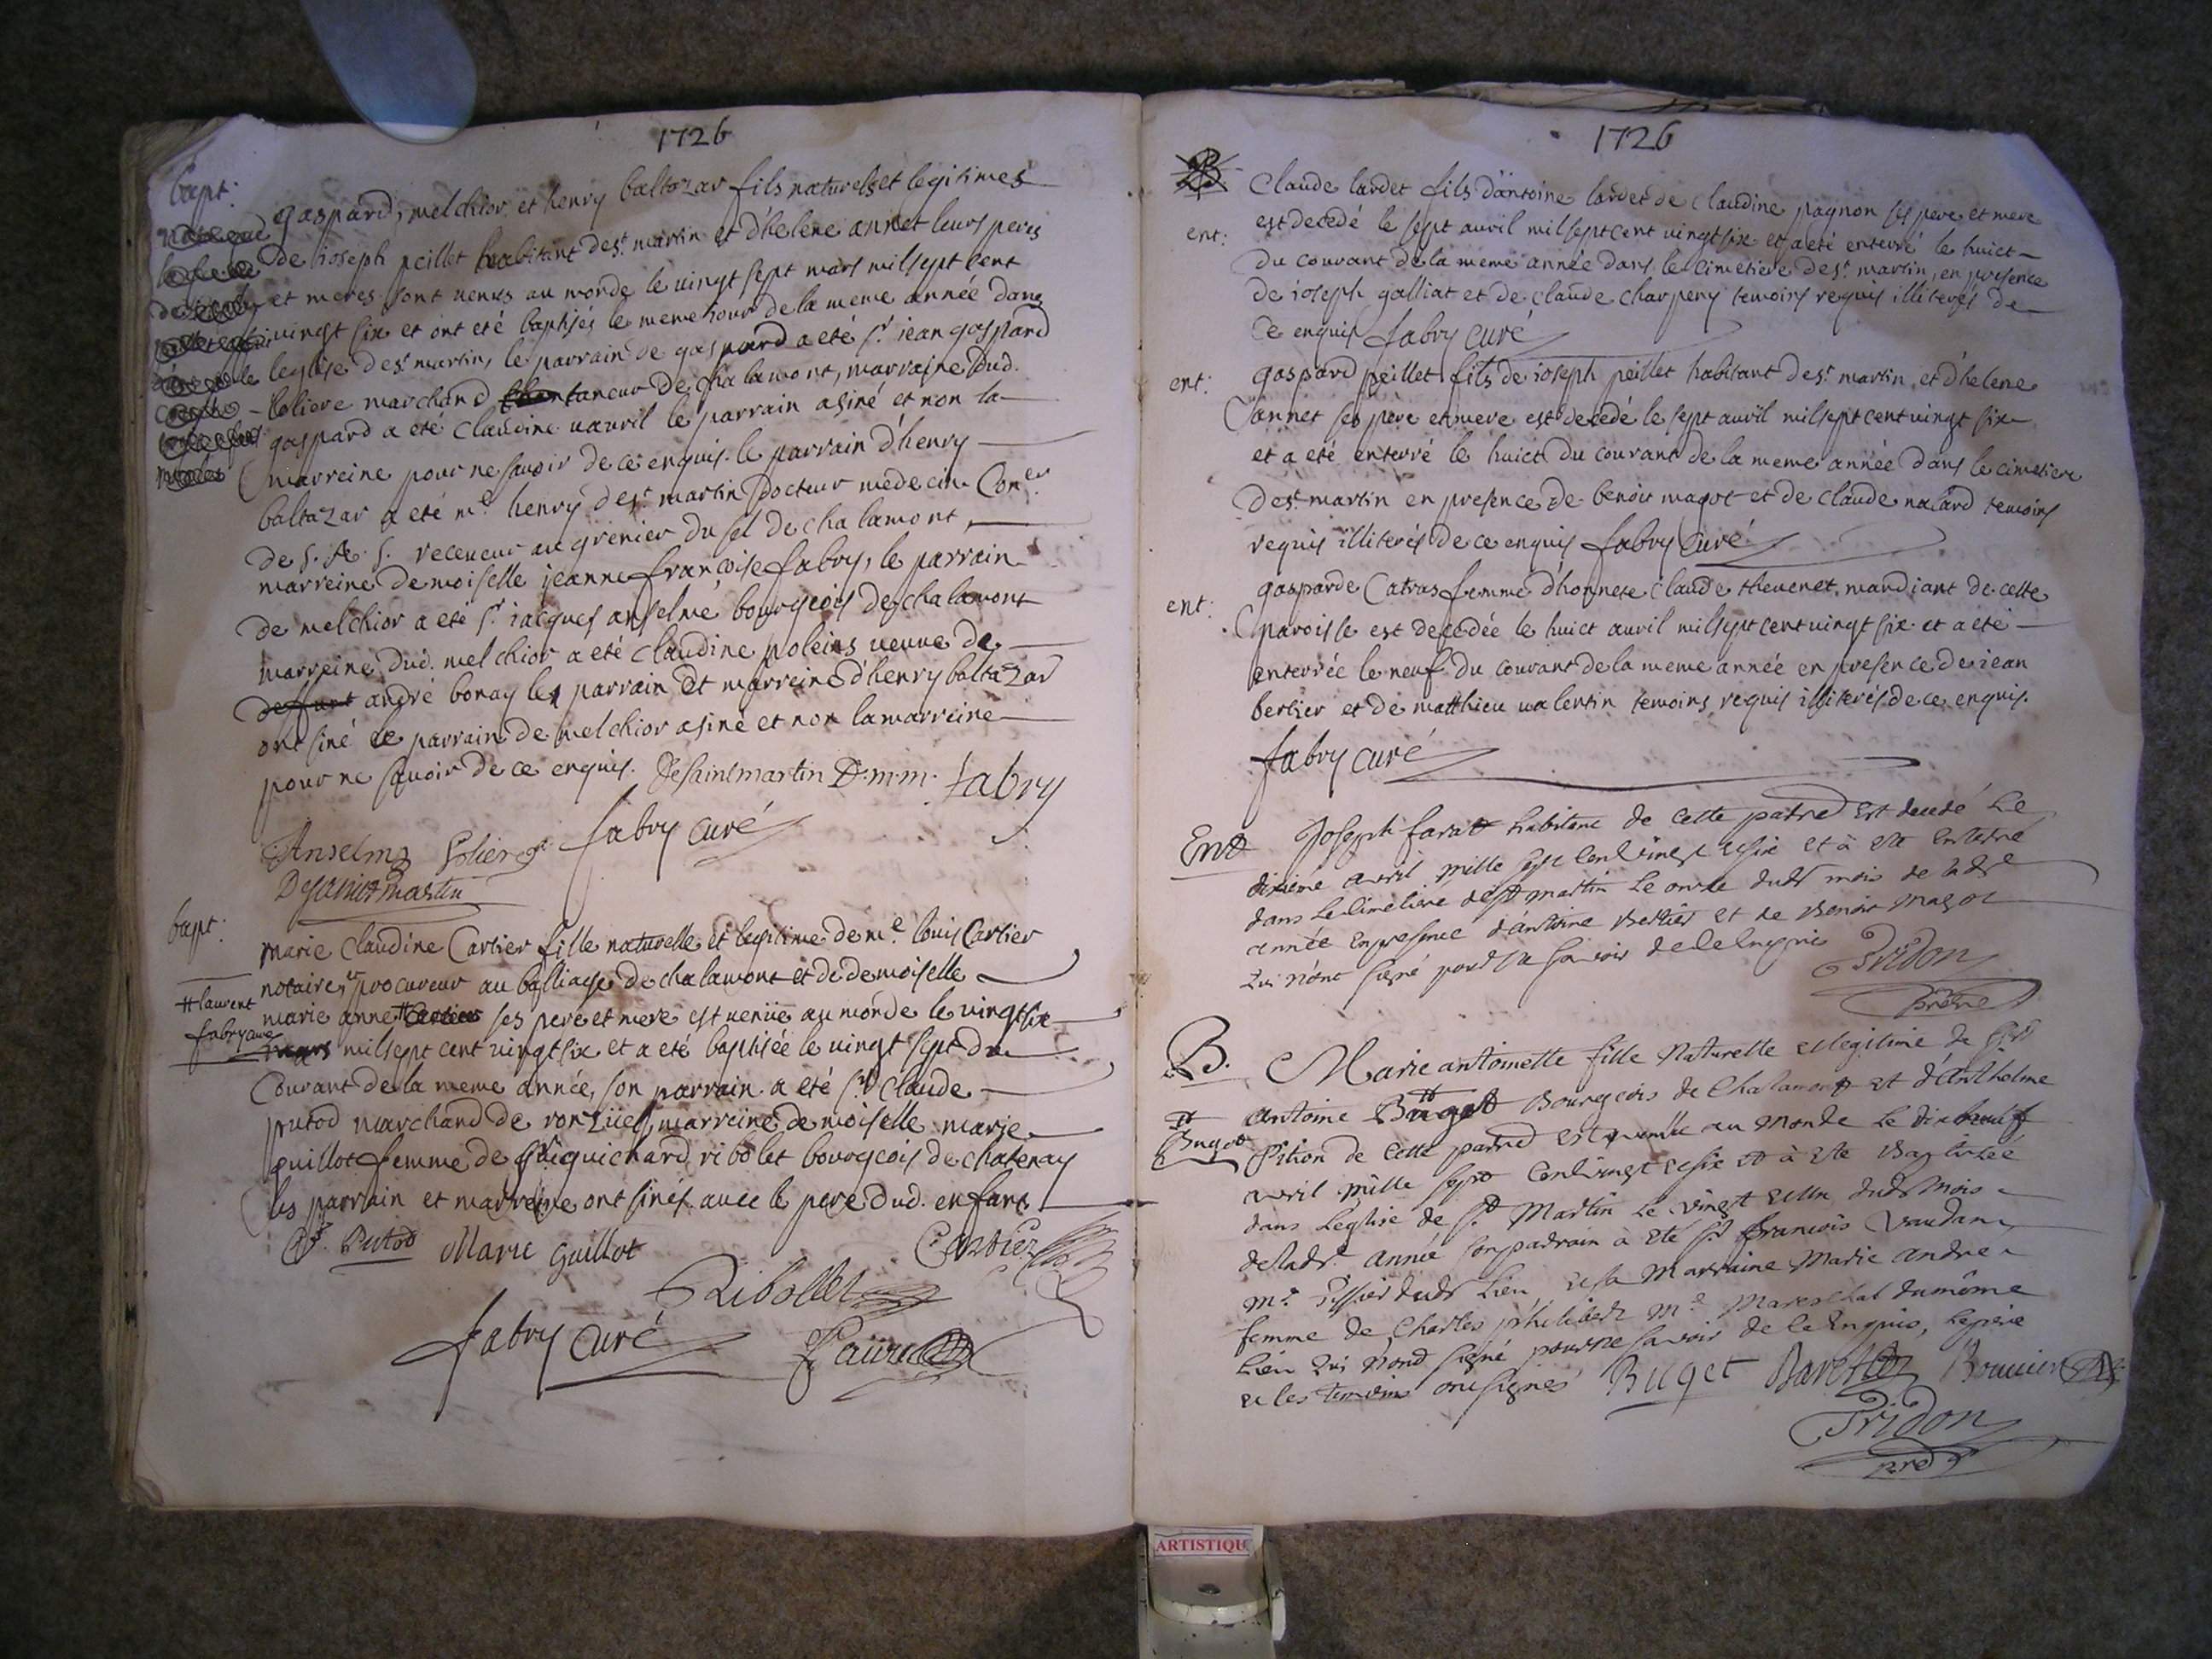 1726
bapt:
gaspard, melchior et henry baltazar fils naturels et legitimes
de ioseph peillet habitant de st martin et d'helene annet leurs peres
et meres sont venus au monde le vingt sept mars mil sept cent
vingt six et ont eté baptisés le meme iour de la meme année dans
leglise de st martin, le parrain de gaspard a eté sr iean gaspard
-loliere marchand taneur de chalamont, marraine dud.
gaspard a eté claudine vauvril le parrain a siné et non la
marreine pour ne savoir de ce enquis. le parrain d'henry
baltazar a eté me henry de st martin docteur medecin Coner
de s. A. s. receveur au grenier du sel de chalamont,
marreine demoiselle ieanne françoise fabry, le parrain
de melchior a eté sr iacques anselme bourgeois de chalamont
marreine dud. melchior a eté claudine poleins veuve de
deffunt andré bonay les parrain et marreine d'henry baltazar
ont siné le parrain de melchior a siné et non la marreine
pour ne savoir de ce enquis. Desaintmartin D.m.m. fabry
Anselme fabry curé
Desaintmartin
bapt:
marie claudine Cartier fille naturelle et legitime de me louis Cartier
notaire et procureur au balliage de chalamont et de demoiselle
# laurent
fabry curé
marie anne # Cartier ses pere et mere est venüe au monde le vingt six
mars mil sept cent vingt six et a eté baptisée le vingt sept du
Courant de la meme année, son parrain a eté sr claude
putod marchand de ronzüel, marreine demoiselle marie
guillot femme de sr guichard ribolet bourgeois de chatenay
les parrain et marreine ont sinés avec le pere dud. enfant
Putod Marie guillot Cartier
Ribollet
fabry curé
1726
B
ent:
Claude lardet fils d'antoine lardet de claudine pagnon ses pere et mere
est decedé le sept avril mil sept cent vingt six et a eté enterré le huict
du courant de la meme année dans le cimetiere de st martin, en presence
de ioseph galliat et de claude charpeny temoins requis illiterés de
ce enquis fabry curé
ent:
gaspard peillet fils de ioseph peillet habitant de st martin et d'helene
annet ses pere et mere est decedé le sept avril mil sept cent vingt six
et a eté enterré le huict du courant de la meme année dans le cimetiere
de st martin en presence de benoit magot et de claude nalard temoins
requis illiterés de ce enquis fabry Curé
ent:
gasparde Catras femme d'honnete claude thevenet mandiant de cette
paroisse est decedée le huict avril mil sept cent vingt six et a eté
enterrée le neuf du courant de la meme année en presence de iean
berlier et de matthieu valentin temoins requis illiterés de ce enquis.
fabry curé
Ent
Joseph farat habitant de cette parse est decedé le
dixieme avril mille sept cent vingt et six et à eté enterré
dans le cimetiere de st martin le onze dudt mois de ladte
année en presence d'antoine Berlier et de Benoit Magot
qui n'ont signé pour ne savoir de ce enquis Pridon
prêtre
B.
Marie antoinette fille Naturelle et legitime de sr
antoine Buget # Bourgeois de Chalamont et d'Anthelme
# Buget
Pithon de cette parse est venüe au Monde le dix neuf
avril mille sept cent vingt et six et à eté Baptisée
dans leglise de st Martin le vingt et un dudt Mois
de ladte année son parrain à eté sr francois vaudan
me Tissier dudt lieu et sa Marraine Marie andré
femme de Charles philibert me Mareschal du même
lieu qui n'ont signé pour ne savoir de ce Enquis, le pere
et les temoins ont signés Buget Bouvier
Pridon
pre
ARTISTIQU